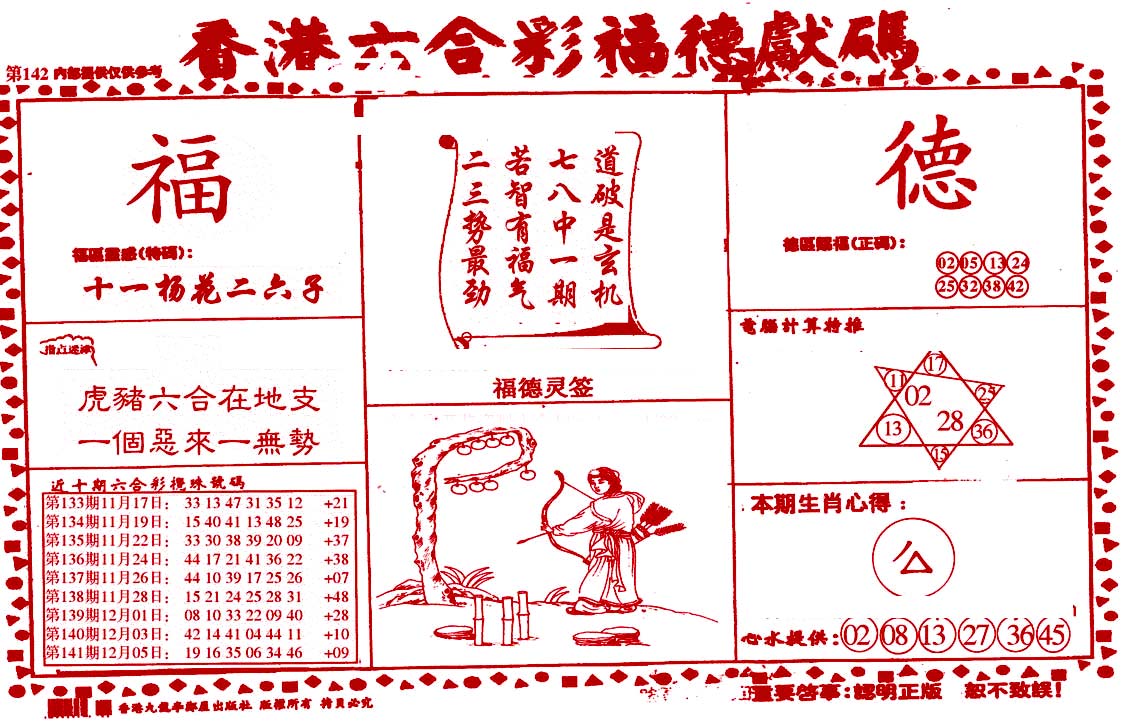 香港六合彩福德獻碼
第142 内部提供仅供参考
福
福區靈感(特碼):
十一杨花二六子
指点迷津
虎豬六合在地支
一個惡來一無勢
近十期六合彩攪珠號碼
第133期11月17日: 33 13 47 31 35 12 +21
第134期11月19日: 15 40 41 13 48 25 +19
第135期11月22日: 33 30 38 39 20 09 +37
第136期11月24日: 44 17 21 41 36 22 +38
第137期11月26日: 44 10 39 17 25 26 +07
第138期11月28日: 15 21 24 25 28 31 +48
第139期12月01日: 08 10 33 22 09 40 +28
第140期12月03日: 42 14 41 04 44 11 +10
第141期12月05日: 19 16 35 06 34 46 +09
道破是玄机
七八中一期
若智有福气
二三势最劲
福德灵签
德
德區賜福(正碼):
02 05 13 24
25 32 38 42
電腦計算特推
17
11 02 25
13 28 36
15
本期生肖心得:
公
心水提供: 02 08 13 27 36 45
版權所有
重要啓事:認明正版 恕不致誤!